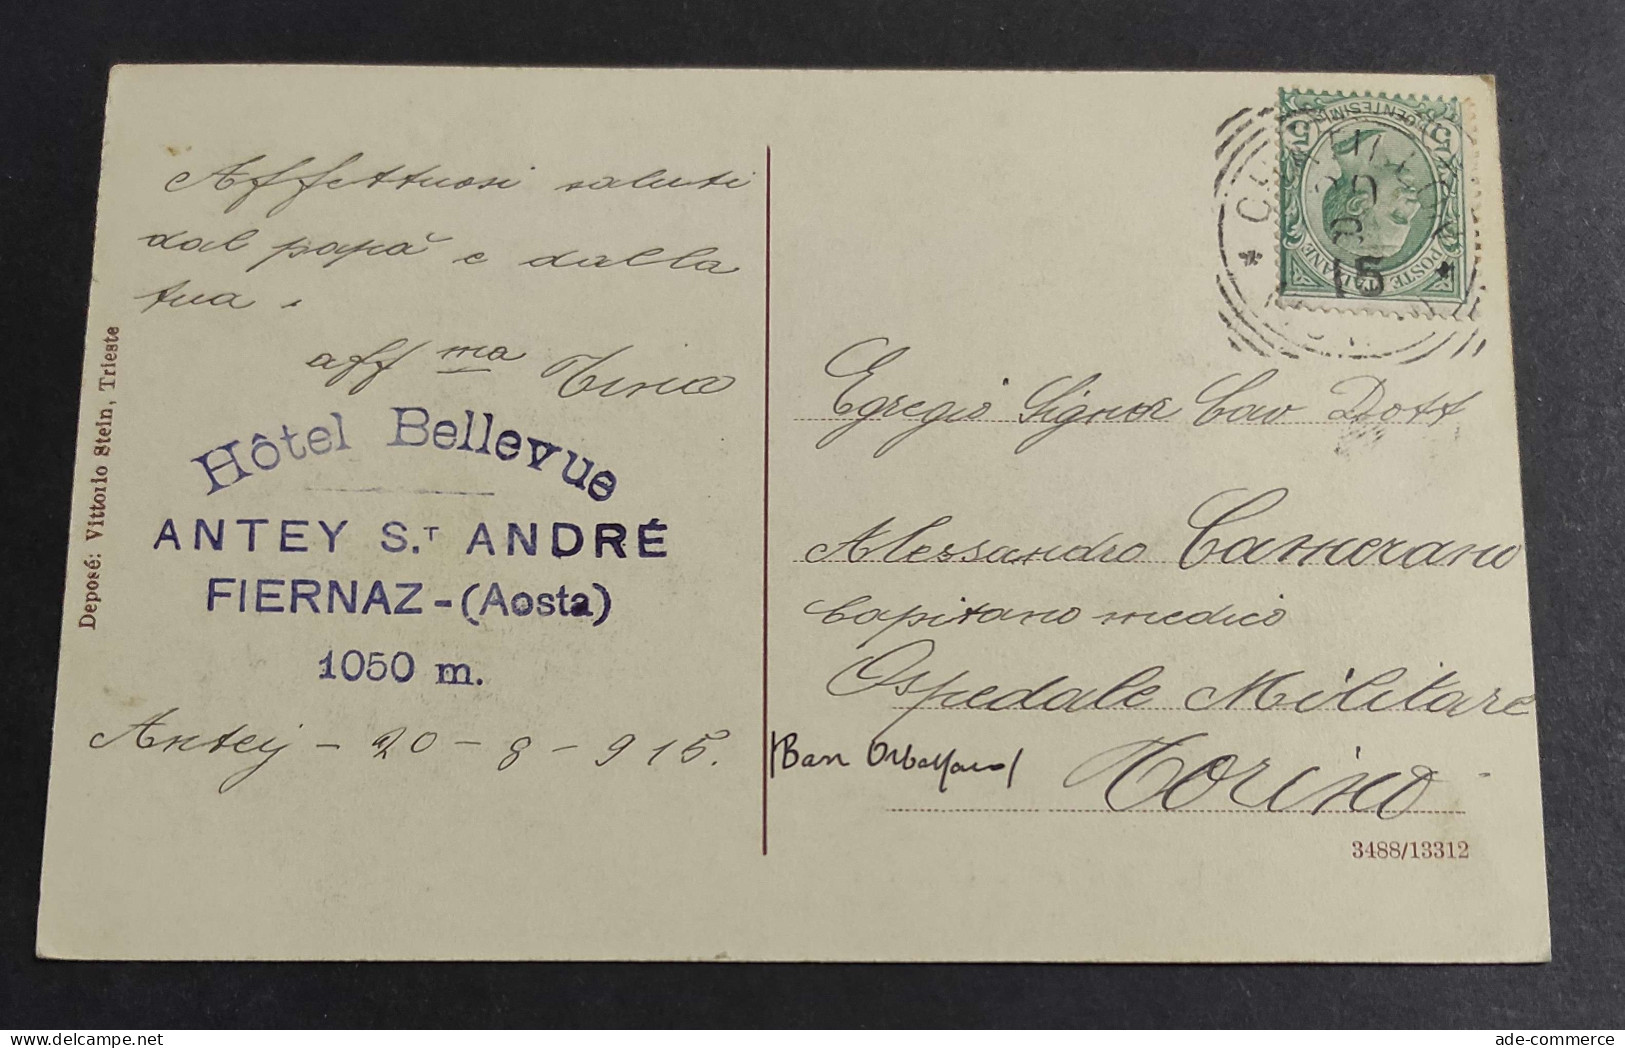 Affettuosi saluti
dal papà e dalla
tua
aff ma Tina
Hôtel Bellevue
ANTEY S.T ANDRÉ
FIERNAZ-(Aosta)
1050 m.
Antey - 20 - 8 - 915.
Deposé: Vittorio Stein, Trieste
5 CENTESIMI 5
POSTE ITALIANE
15
Egregio Signor Cav Dott
Alessandro Camerano
Capitano medico
Ospedale Militare
Torino
3488/13312
ade-commerce